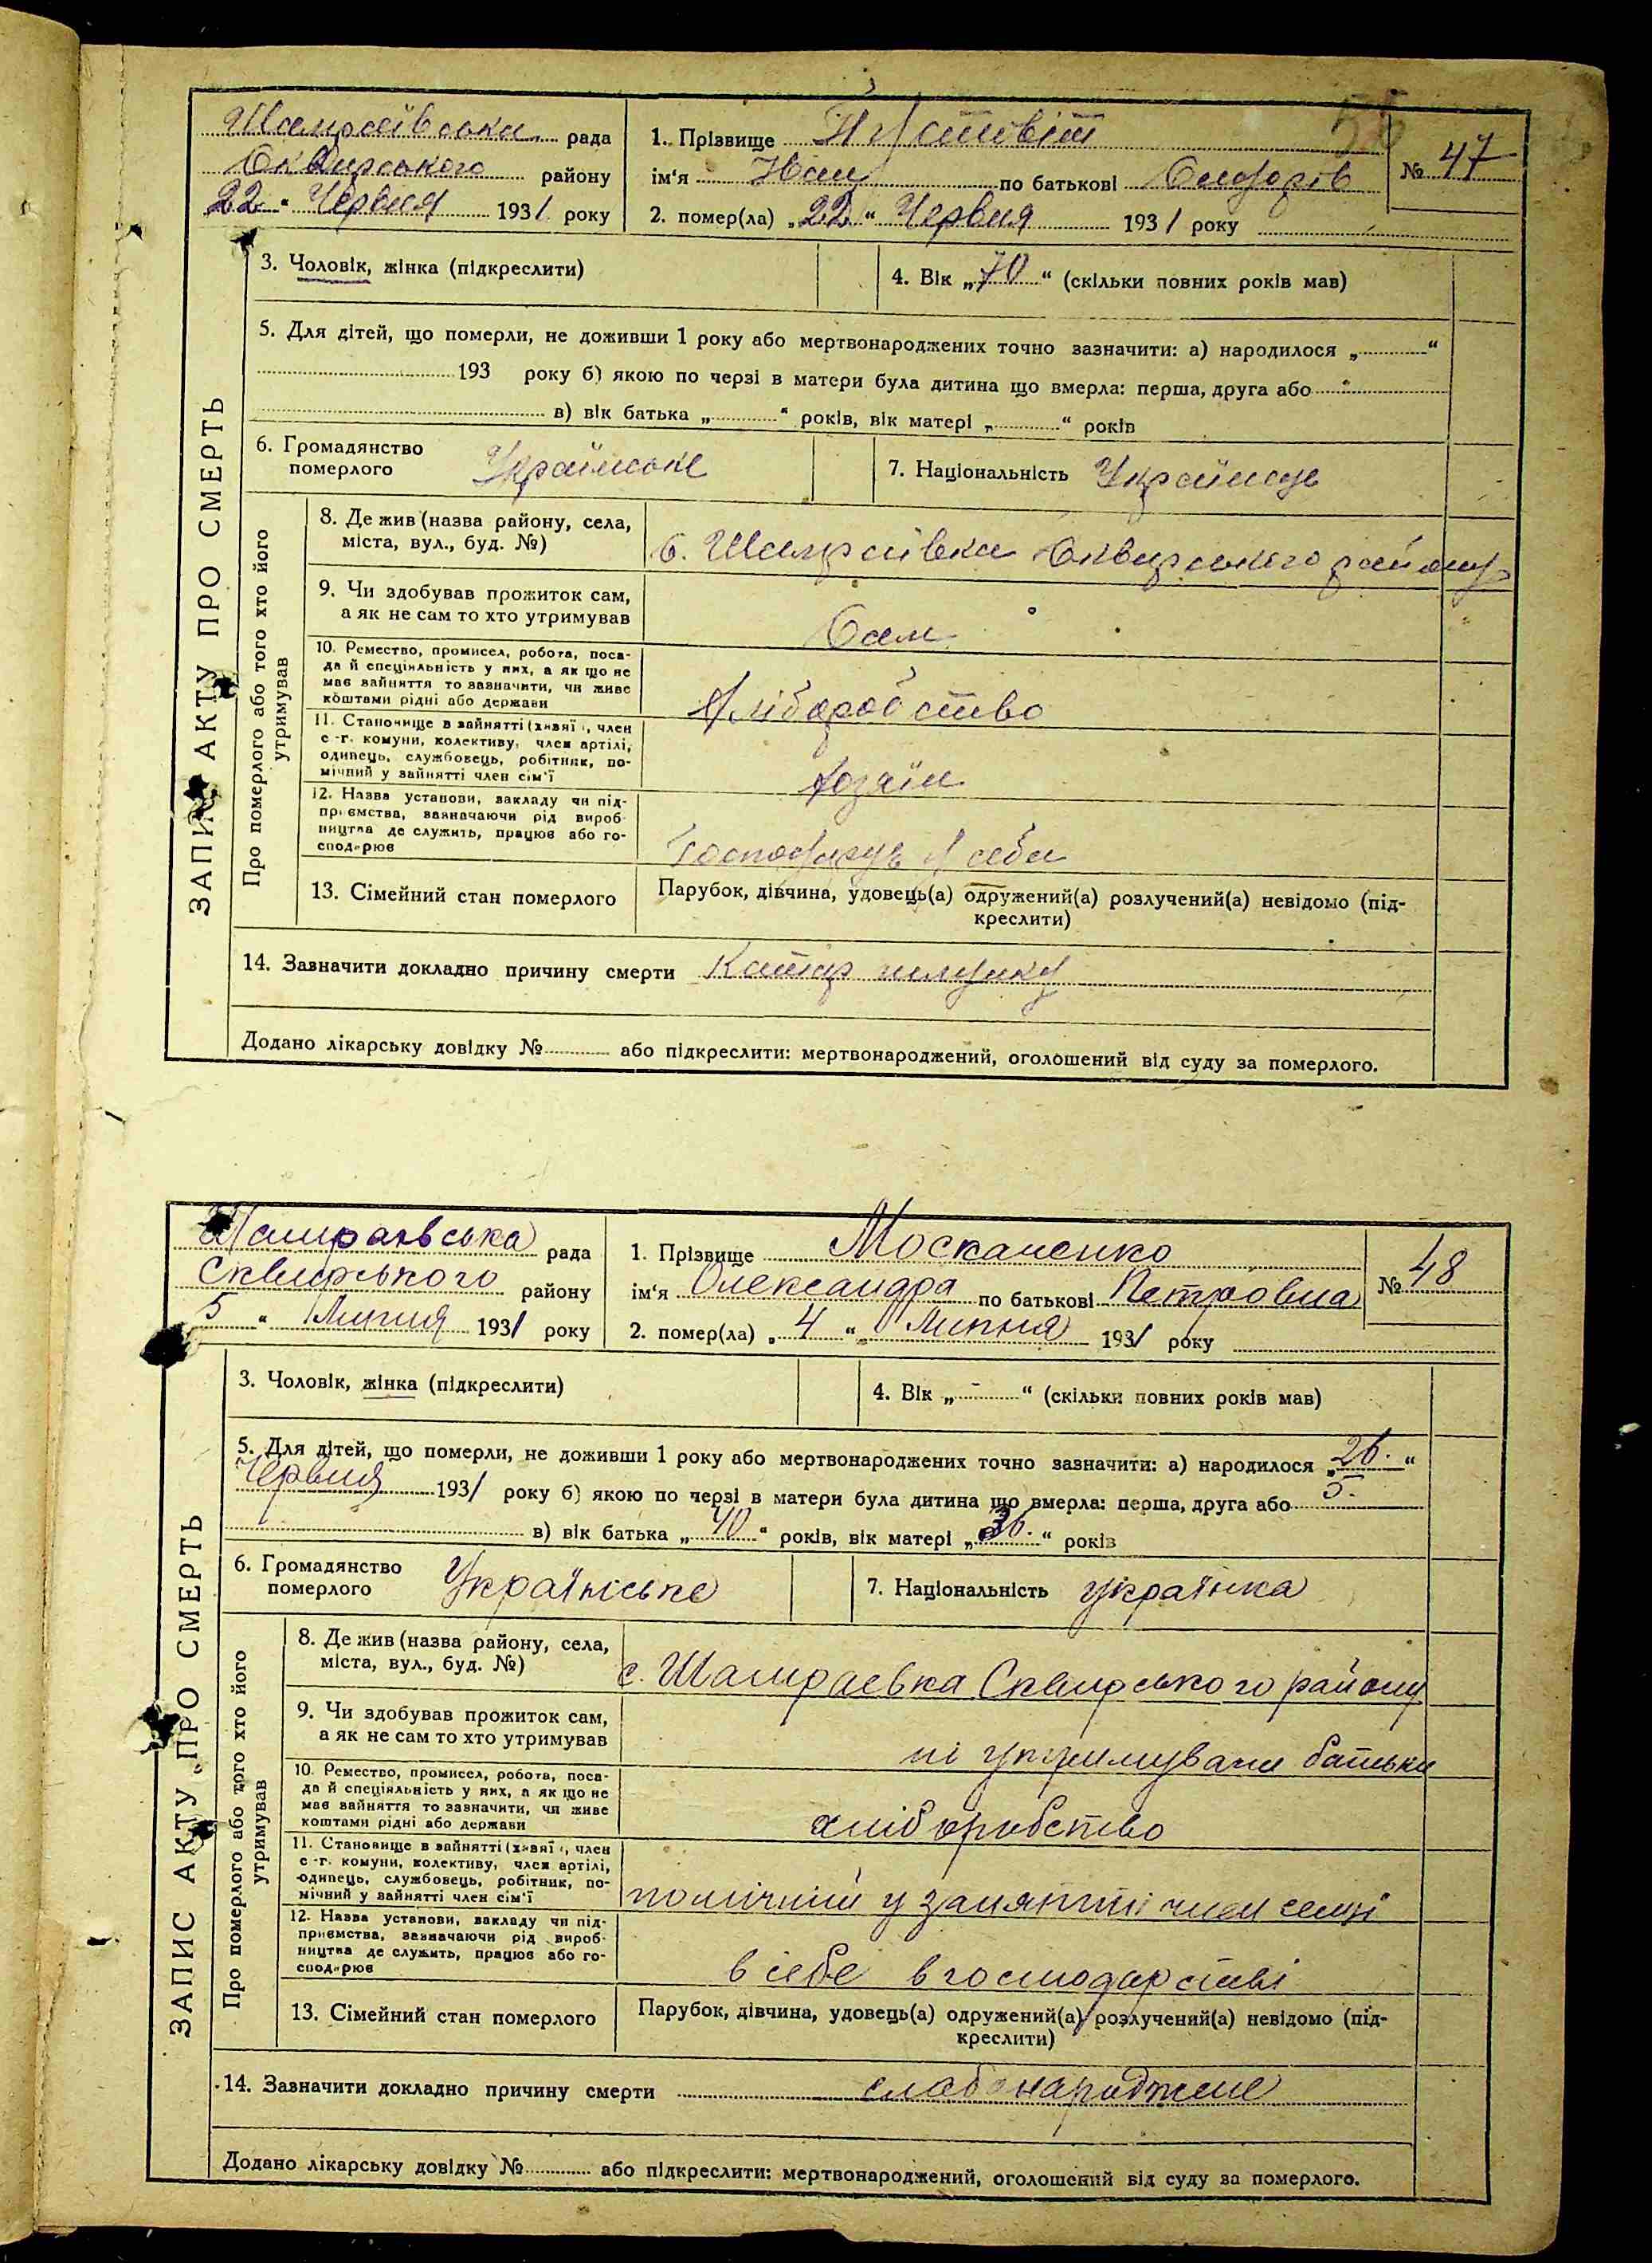 56
Шамраївська рада
Сквирського району
22 " Червня 1931 року
1. Прізвище Пустовіт
ім'я Іван по батькові Сидорів
№ 47
2. помер(ла) „22" Червня 1931 року
3. Чоловік, жінка (підкреслити)
4. Вік „70" (скільки повних років мав)
5. Для дітей, що померли, не доживши 1 року або мертвонароджених точно зазначити: а) народилося „ "
193 року б) якою по черзі в матери була дитина що вмерла: перша, друга або
в) вік батька „ " років, вік матері „ " років
6. Громадянство
померлого
Українське
7. Національність Українець
ЗАПИС АКТУ ПРО СМЕРТЬ
Про померлого або того хто його
утримував
8. Де жив (назва району, села,
міста, вул., буд. №)
С. Шамраївка Сквирського району
9. Чи здобував прожиток сам,
а як не сам то хто утримував
Сам
10. Ремество, промисел, робота, поса-
да й спеціяльність у них, а як що не
має зайняття то зазначити, чи живе
коштами рідні або держави
Хліборобство
11. Становище в зайнятті (хазяї , член
с.-г. комуни, колективу, член артілі,
одинець, службовець, робітник, по-
мічний у зайнятті член сім'ї
Хозяїн
12. Назва установи, закладу чи під-
приємства, зазначаючи рід вироб-
ництва де служить, працює або го-
сподарює
Господарує у себе
13. Сімейний стан померлого
Парубок, дівчина, удовець(а) одружений(а) розлучений(а) невідомо (під-
креслити)
14. Зазначити докладно причину смерти Катар шлунку
Додано лікарську довідку № або підкреслити: мертвонароджений, оголошений від суду за померлого.
Шамраївська рада
Сквирського району
5 " Липня 1931 року
1. Прізвище Москаленко
ім'я Олександра по батькові Петровна
№ 48
2. помер(ла) „ 4 " Липня 1931 року
3. Чоловік, жінка (підкреслити)
4. Вік „ - " (скільки повних років мав)
5. Для дітей, що померли, не доживши 1 року або мертвонароджених точно зазначити: а) народилося „26."
Червня 1931 року б) якою по черзі в матери була дитина що вмерла: перша, друга або 5.
в) вік батька „40" років, вік матері „36." років
6. Громадянство
померлого
Українське
7. Національність українка
ЗАПИС АКТУ ПРО СМЕРТЬ
Про померлого або того хто його
утримував
8. Де жив (назва району, села,
міста, вул., буд. №)
с. Шамраевка Сквирського району
9. Чи здобував прожиток сам,
а як не сам то хто утримував
ні утримували батьки
10. Ремество, промисел, робота, поса-
да й спеціяльність у них, а як що не
має зайняття то зазначити, чи живе
коштами рідні або держави
хліборобство
11. Становище в зайнятті (хазяї , член
с.-г. комуни, колективу, член артілі,
одинець, службовець, робітник, по-
мічний у зайнятті член сім'ї
помічній у занятті член семї
12. Назва установи, закладу чи під-
приємства, зазначаючи рід вироб-
ництва де служить, працює або го-
сподарює
в себе в господарстві
13. Сімейний стан померлого
Парубок, дівчина, удовець(а) одружений(а) розлучений(а) невідомо (під-
креслити)
14. Зазначити докладно причину смерти слабонароджене
Додано лікарську довідку № або підкреслити: мертвонароджений, оголошений від суду за померлого.